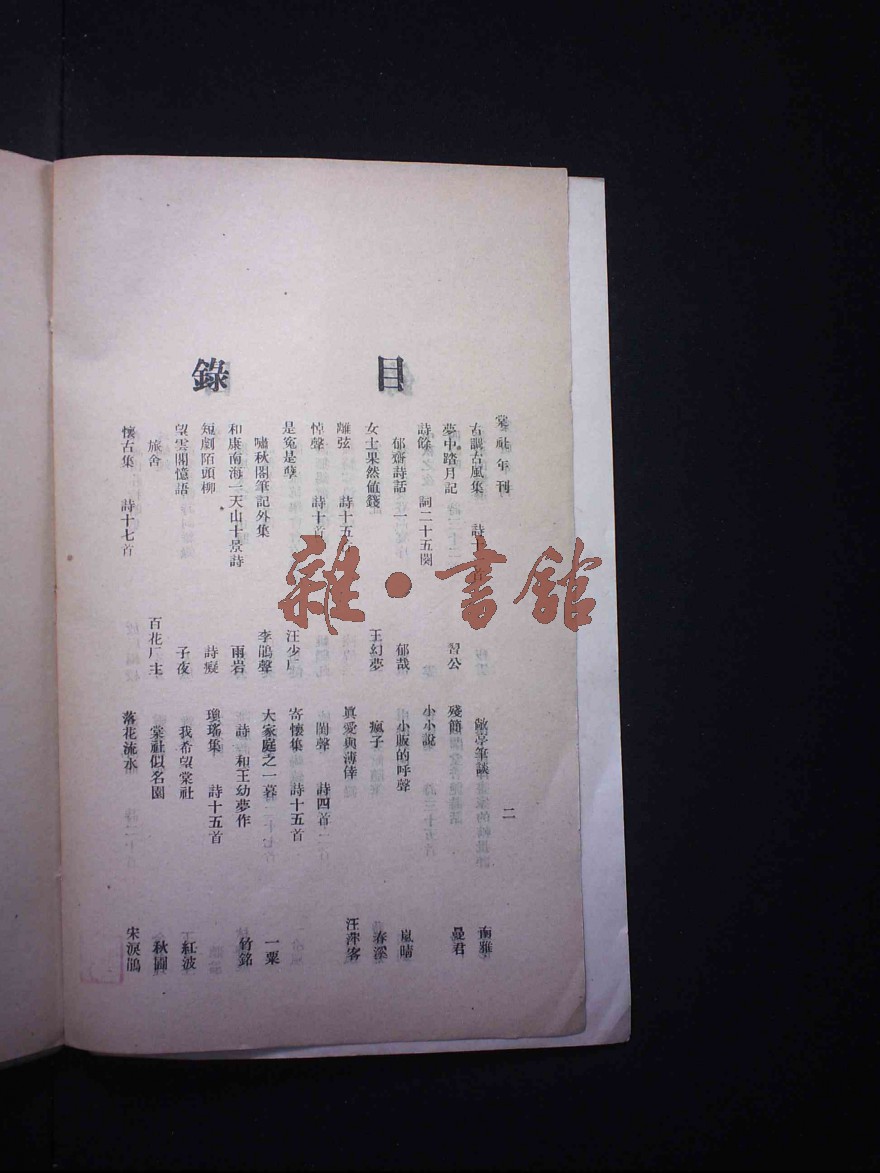 棠社年刊
二
目錄
古歡古風集 詩十 首
夢中踏月記 習公
詩餘 詞二十五闋
郁齋詩話一 郁哉
女士果然值錢 王幻夢
離弦 詩十五
悼聲 詩十首
是冤是孽 汪少厂
嘯秋閣筆記外集 李鵑聲
和康南海三天山十景詩 雨岩
短劇陌頭柳 詩癡
望雲閣憶語 子夜
旅舍 百花厂主
懷古集 詩十七首
敝亭筆談 南雅
殘簡 曼君
小小說
小販的呼聲 嵐晴
瘋子 春溪
眞愛與薄倖 汪萍客
閨聲 詩四首
寄懷集 詩十五首
大家庭之一幕 一粟
詩 和王幼夢作 竹銘
瓊瑤集 詩十五首
我希望棠社 紅波
棠社似茗園 秋圃
落花流水 宋淚鵑
雜·書館